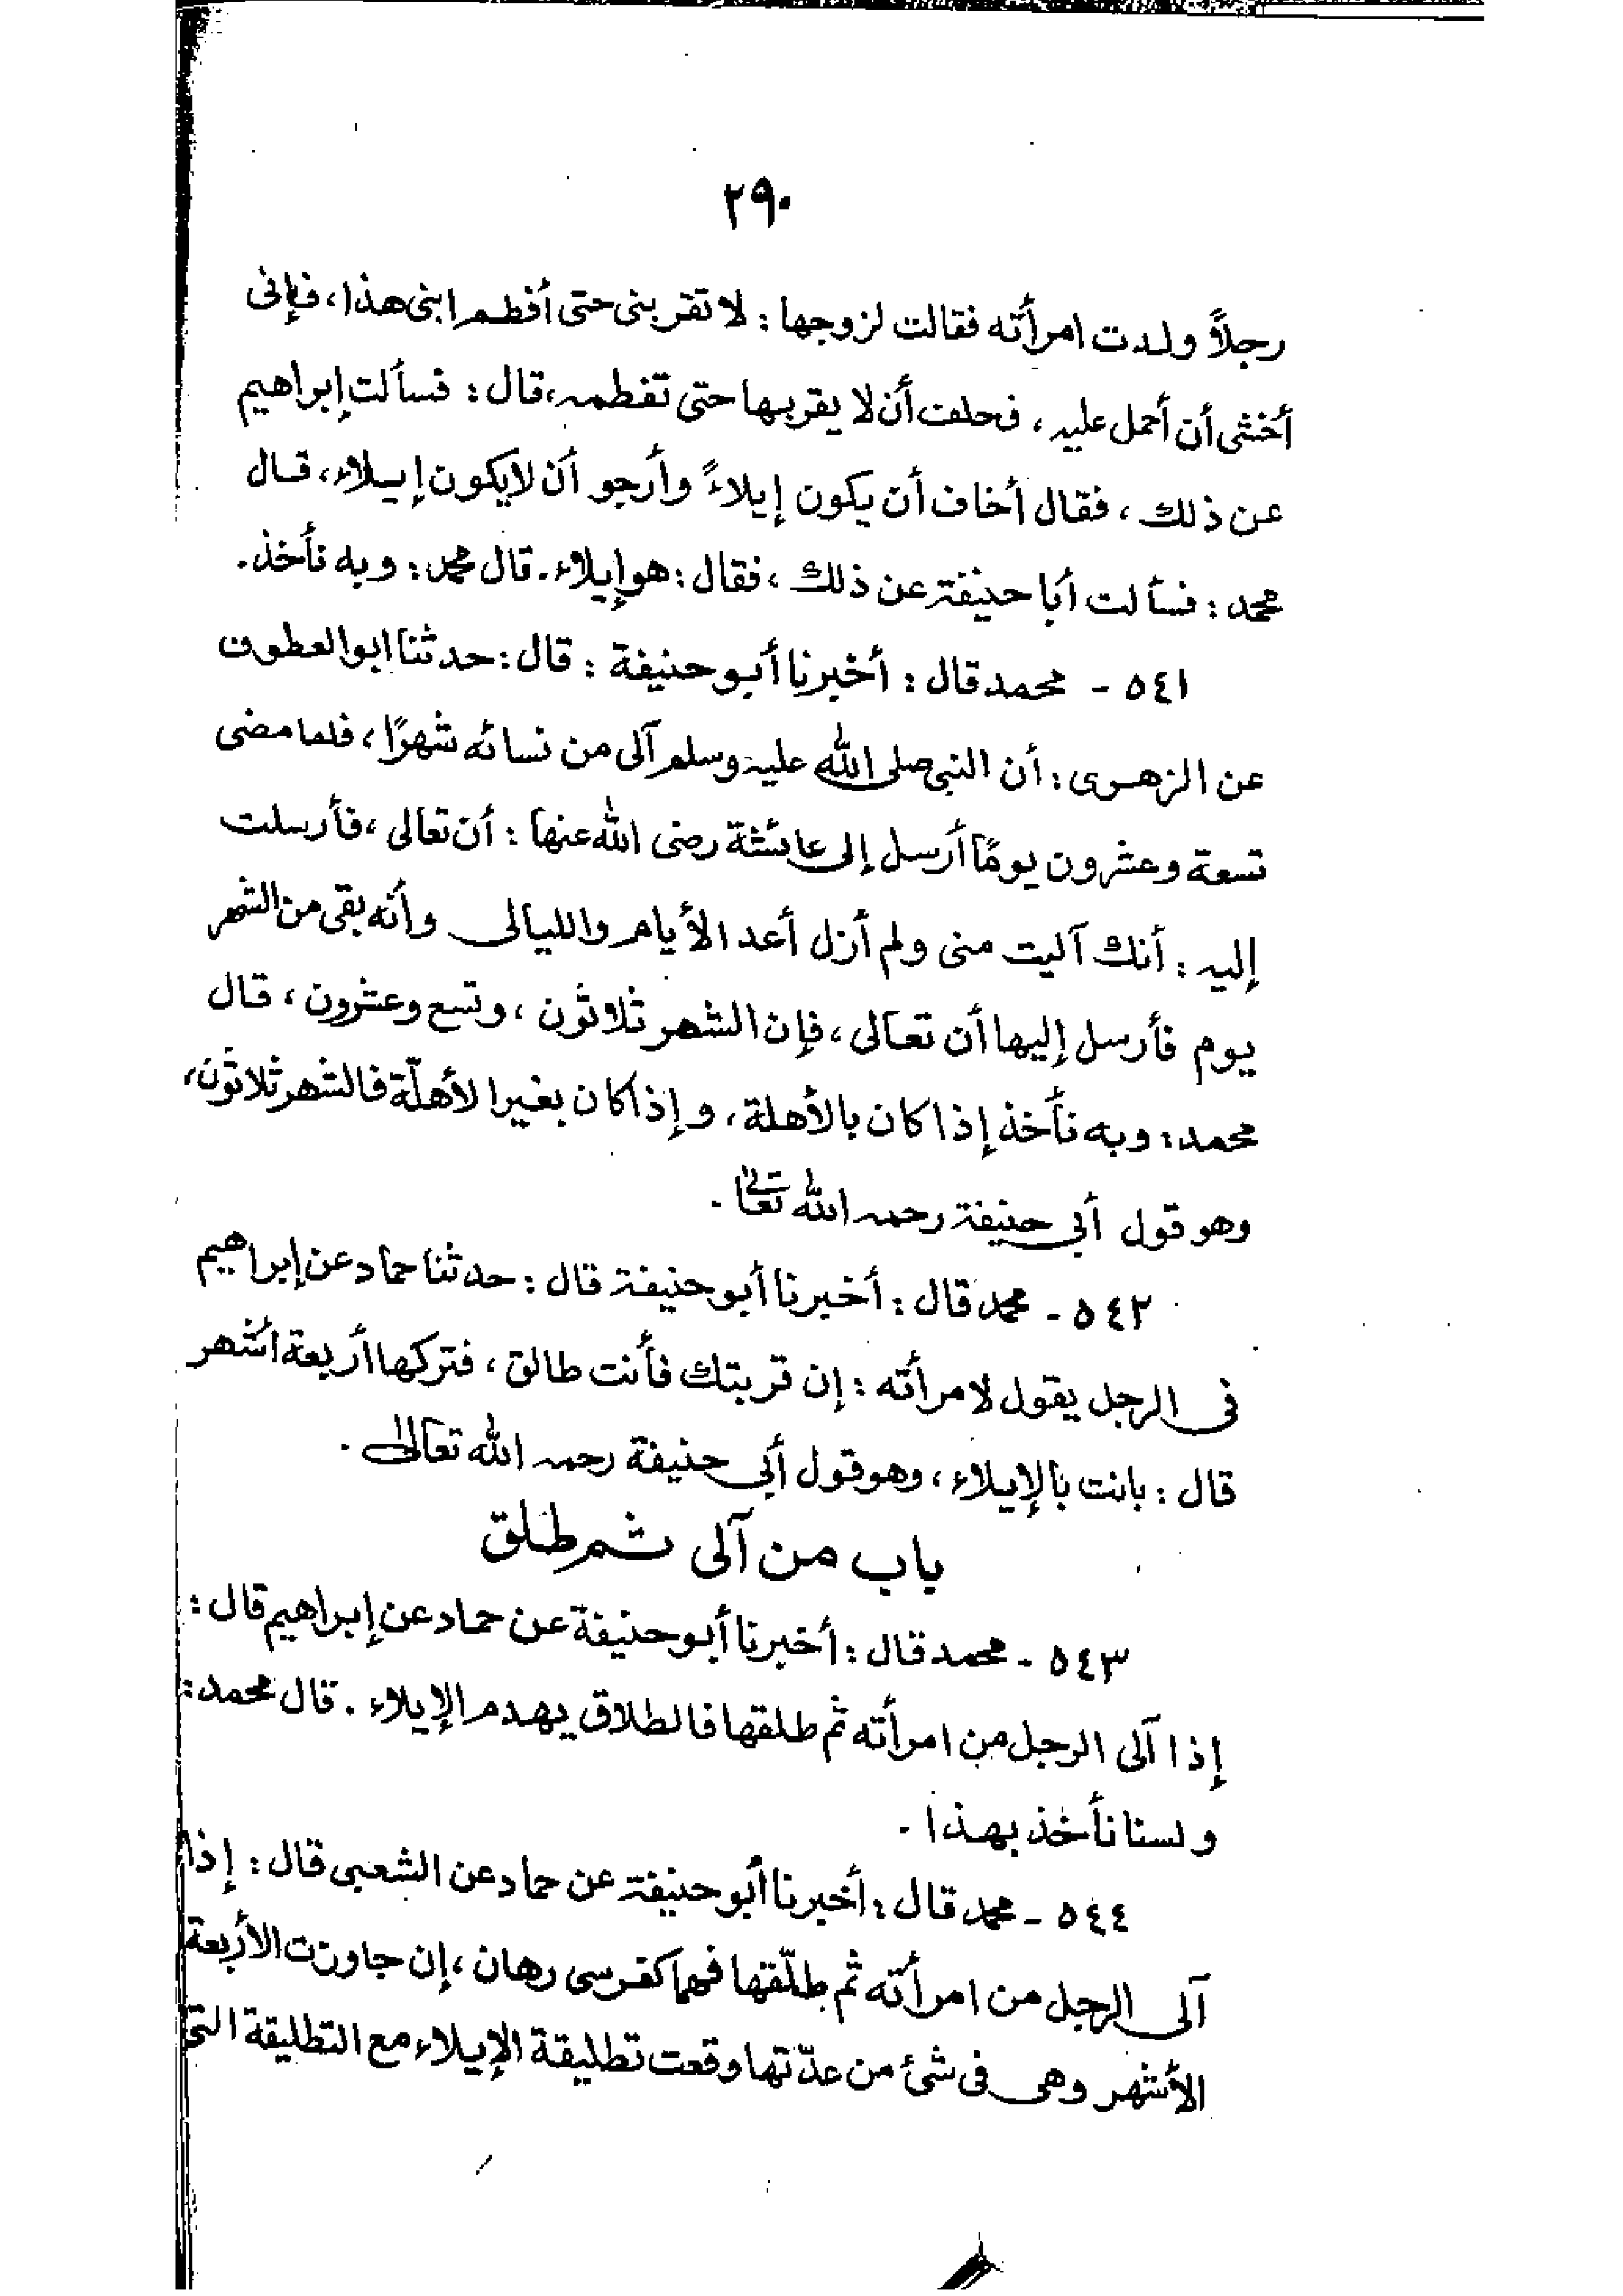 ٢٩٠
رجلاً ولدت امرأته فقالت لزوجها : لا تقربنى حتى أفطم ابنى هذا ، فإنى
أخشى أن أحمل عليه ، فحلف أن لا يقربها حتى تفطمه ، قال : فسألت إبراهيم
عن ذلك ، فقال أخاف أن يكون إيلاءً وأرجو أن لا يكون إيلاء ، قال
محمد : فسألت أبا حنيفة عن ذلك ، فقال : هو إيلاء . قال محمد : وبه نأخذ .
٥٤١ - محمد قال : أخبرنا أبو حنيفة : قال : حدثنا ابو العطوف
عن الزهرى : أن النبى صلى الله عليه وسلم آلى من نسائه شهرًا ، فلما مضى
تسعة وعشرون يومًا أرسل إلى عائشة رضى الله عنها : أن تعالى ، فأرسلت
إليه : أنك آليت منى ولم أزل أعد الأيام والليالى وأنه بقى من الشهر
يوم فأرسل إليها أن تعالى ، فإن الشهر ثلاثون ، وتسع وعشرون ، قال
محمد : وبه نأخذ إذا كان بالأهلة ، وإذا كان بغير الأهلّة فالشهر ثلاثون ،
وهو قول أبى حنيفة رحمه الله تعالى .
٥٤٢ - محمد قال : أخبرنا أبو حنيفة قال : حدثنا حماد عن إبراهيم
فى الرجل يقول لامرأته : إن قربتك فأنت طالق ، فتركها أربعة اشهر
قال : بانت بالإيلاء ، وهو قول أبى حنيفة رحمه الله تعالى .
باب من آلى ثم طلق
٥٤٣ - محمد قال : أخبرنا أبو حنيفة عن حماد عن إبراهيم قال :
إذا آلى الرجل من امرأته ثم طلقها فالطلاق يهدم الإيلاء . قال محمد :
ولسنا نأخذ بهذا .
٥٤٤ - محمد قال : أخبرنا أبو حنيفة عن حماد عن الشعبى قال : إذا
آلى الرجل من امرأته ثم طلّقها فهما كفرسى رهان ، إن جاوزت الأربعة
الأشهر وهى فى شئ من عدّتها وقعت تطليقة الإيلاء مع التطليقة التى